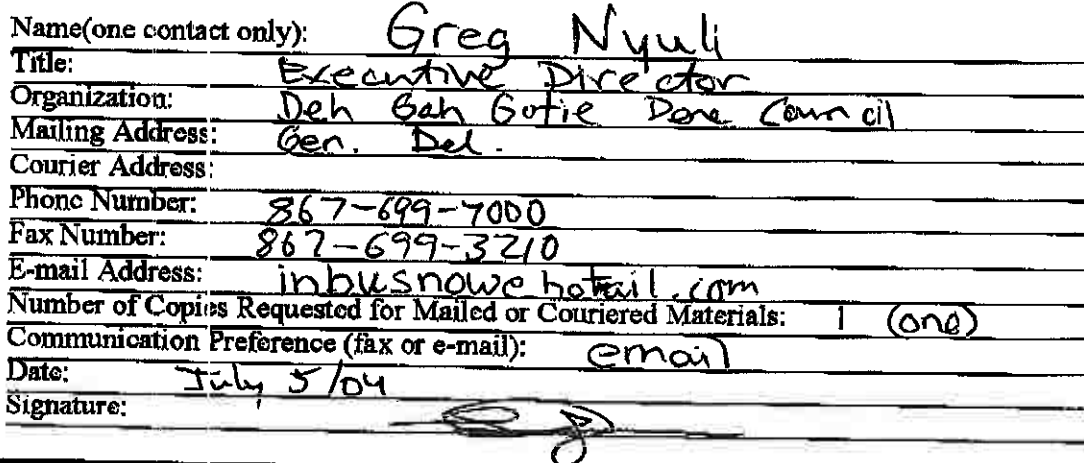 Name(one contact only): Greg Nyuli
Title: Executive Director
Organization: Deh Gah Gotie Dene Council
Mailing Address: Gen. Del.
Courier Address:
Phone Number: 867-699-7000
Fax Number: 867-699-3210
E-mail Address: inbusnow@hotail.com
Number of Copies Requested for Mailed or Couriered Materials: 1 (one)
Communication Preference (fax or e-mail): email
Date: July 5/04
Signature: